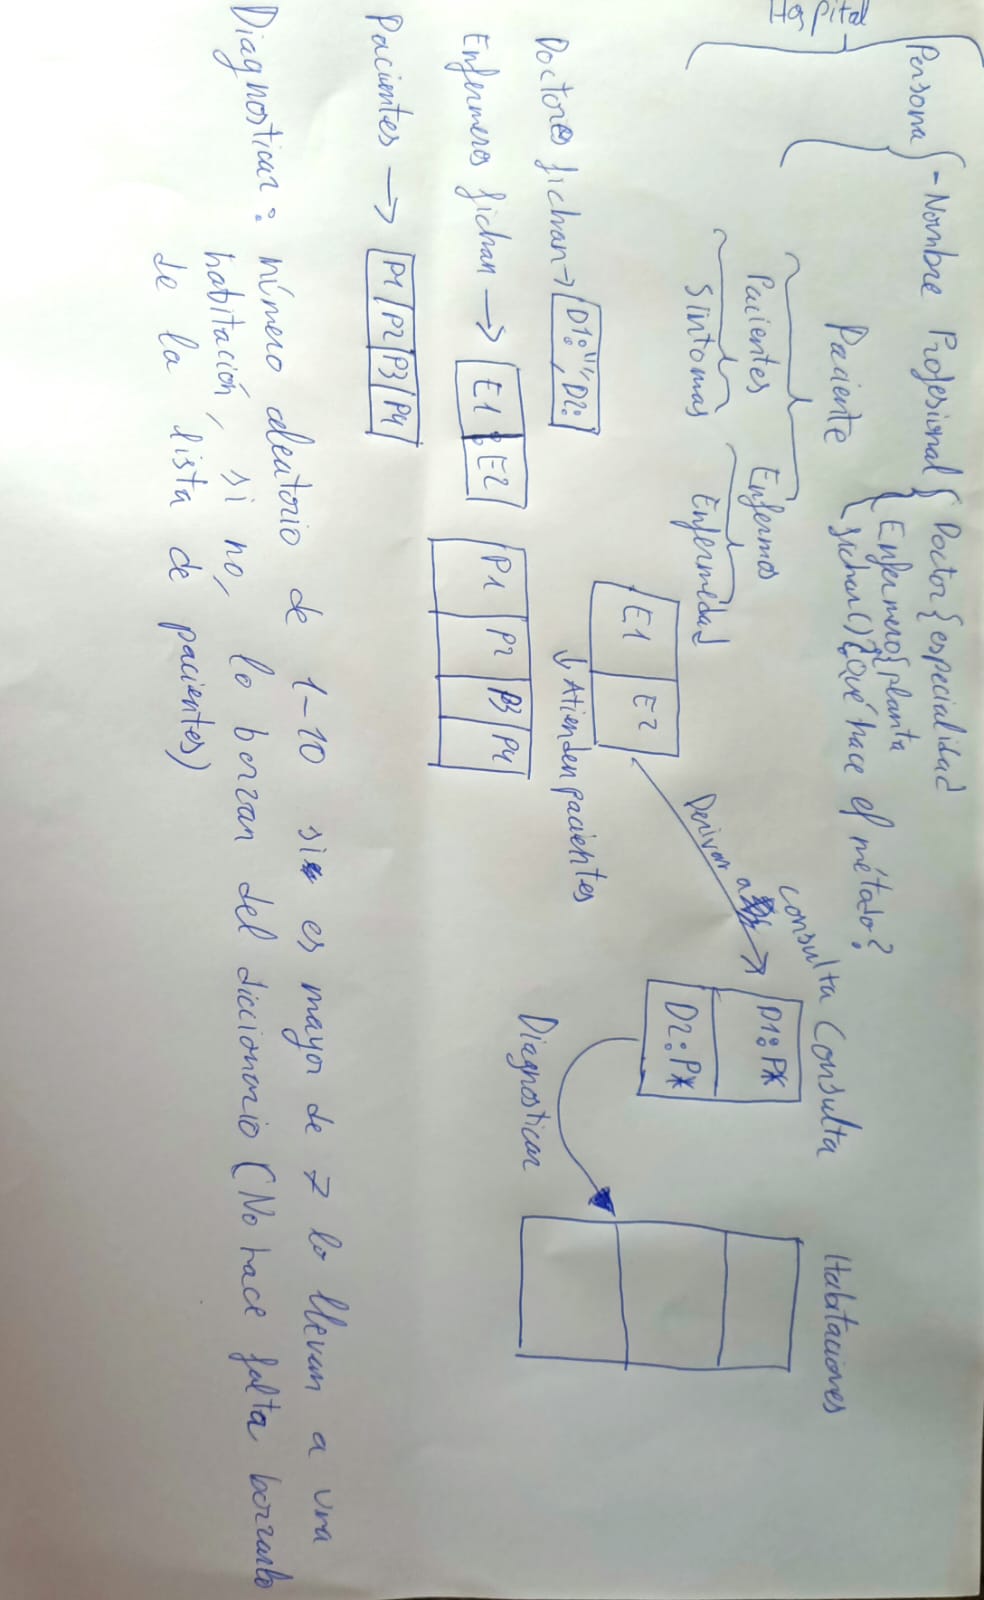 Hospital
Persona
- Nombre
Profesional
Doctor { especialidad
Enfermero { planta
fichar() ¿Qué hace el método?
Paciente
Pacientes
Enfermos
Síntomas
Enfermedad
E1 E2
Derivar a consulta
Consulta
D1: P*
D2: P*
Habitaciones
Diagnosticar
↓ Atienden pacientes
Doctores fichan → D1:"", D2:
Enfermeros fichan → E1 : E2
P1 P2 P3 P4
Pacientes → P1 P2 P3 P4
Diagnosticar: número aleatorio de 1-10 si es mayor de 7 lo llevan a una
habitación, si no, lo borran del diccionario (No hace falta borrarlo
de la lista de pacientes)